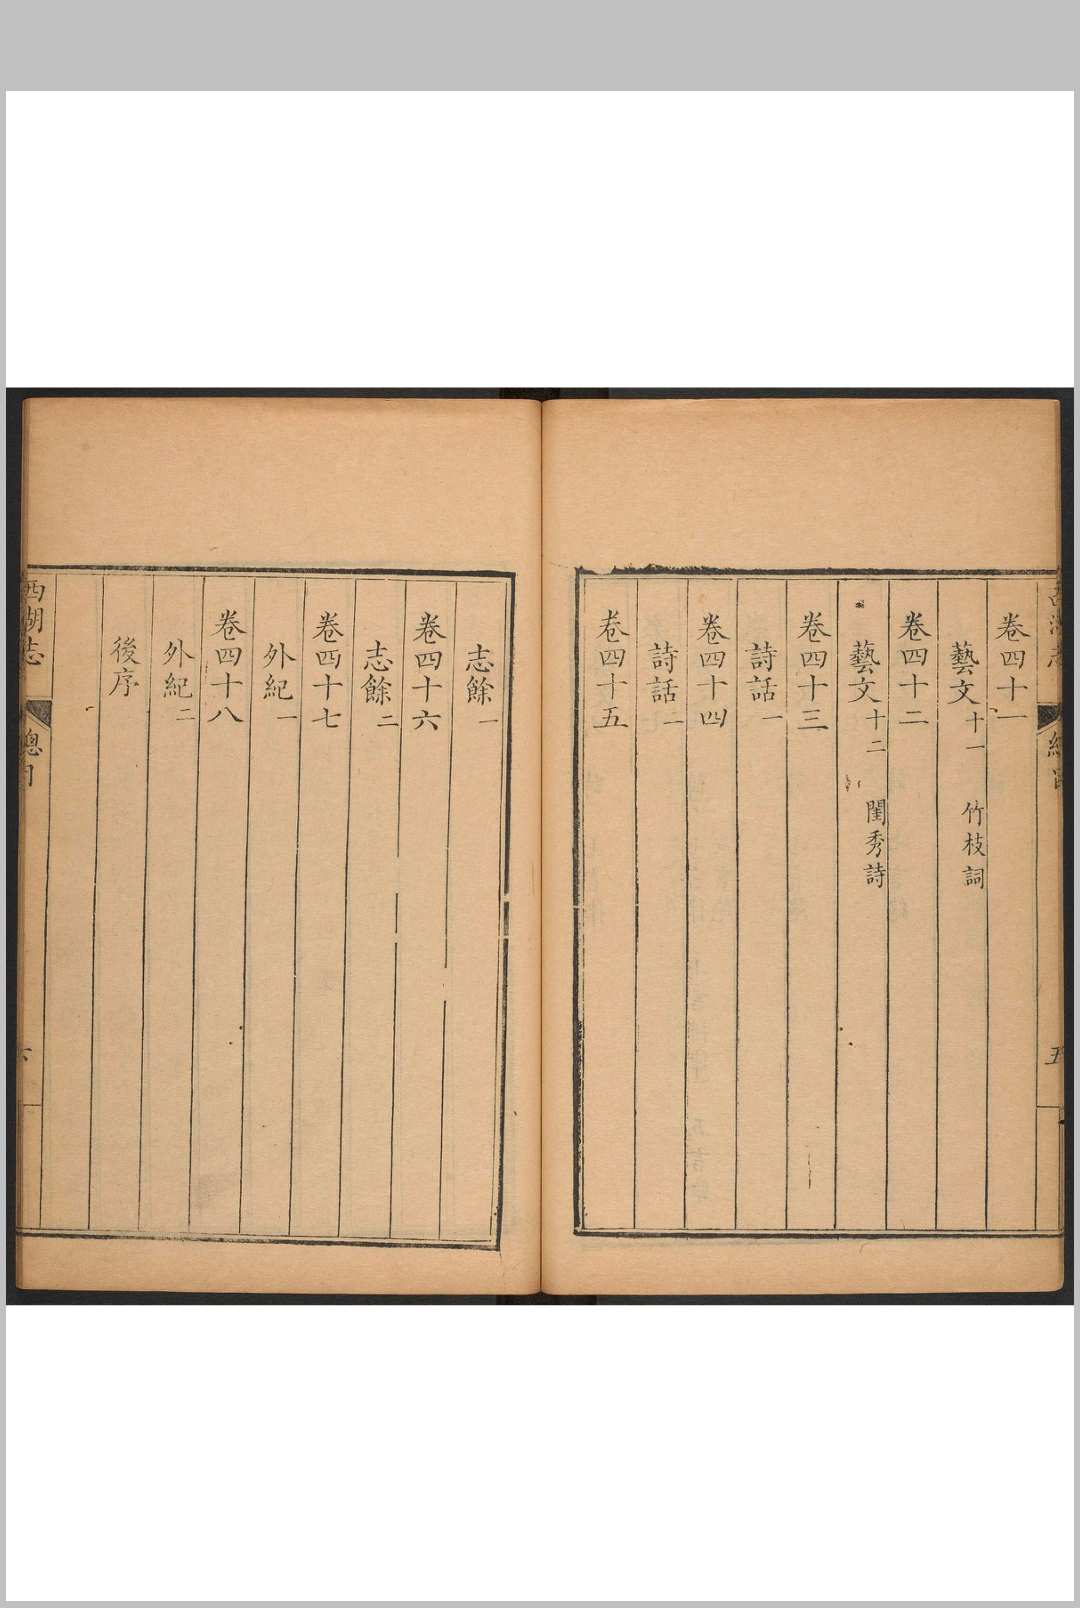 卷四十一
藝文十一 竹枝詞
卷四十二
藝文十二 閨秀詩
卷四十三
詩話一
卷四十四
詩話二
卷四十五
志餘一
卷四十六
志餘二
卷四十七
外紀一
卷四十八
外紀二
後序
西湖志 總目